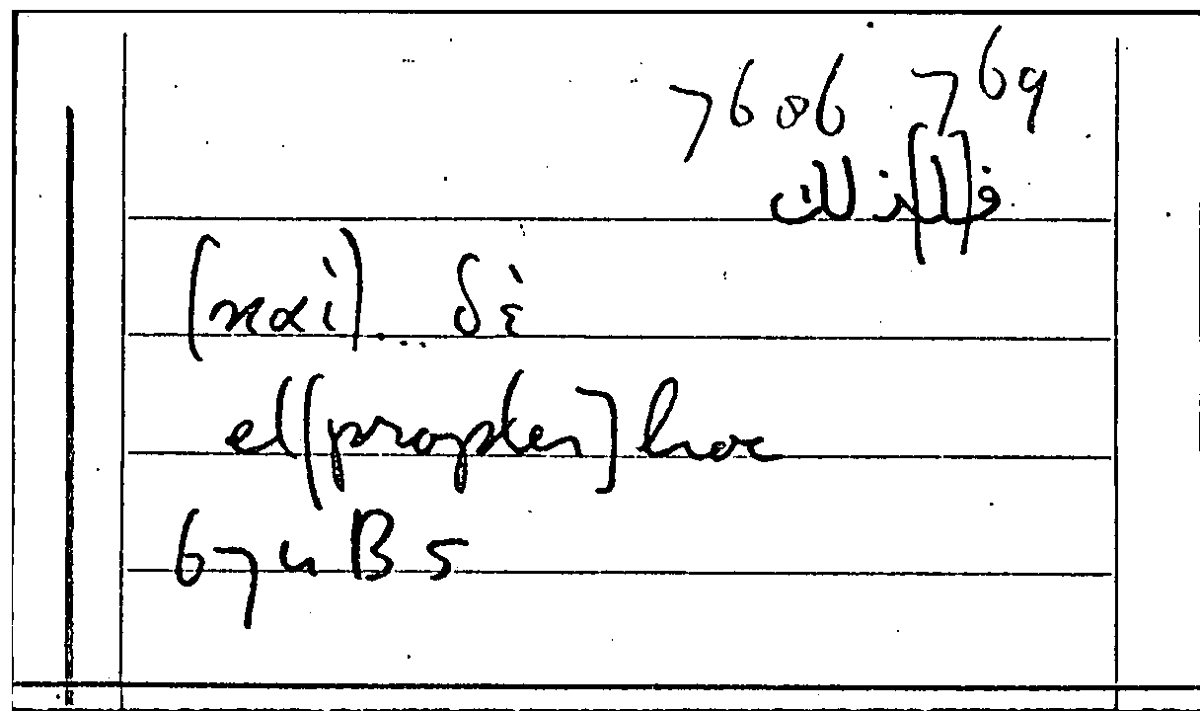 7606 769
ف[ل]ذلك
(καὶ)... δὲ
et [propter] hoc
674 B 5